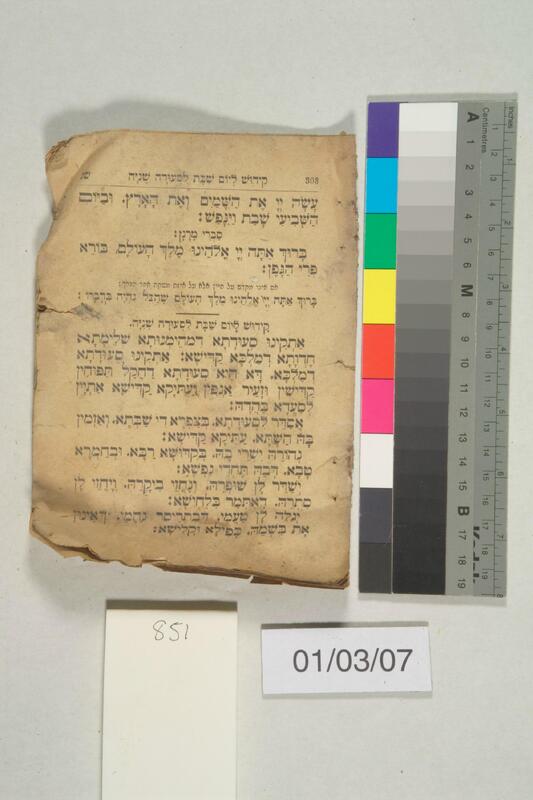 קידוש ליום שבת לסעודה שניה 308
עָשָׂה יְיָ אֶת הַשָּׁמַיִם וְאֶת הָאָרֶץ. וּבַיּוֹם
הַשְּׁבִיעִי שָׁבַת וַיִּנָּפַשׁ:
סַבְרֵי מָרָנָן:
בָּרוּךְ אַתָּה יְיָ אֱלֹהֵינוּ מֶלֶךְ הָעוֹלָם. בּוֹרֵא
פְּרִי הַגָּפֶן:
אם אינו מקדש על היין אלא על
בָּרוּךְ אַתָּה יְיָ אֱלֹהֵינוּ מֶלֶךְ הָעוֹלָם שֶׁהַכֹּל נִהְיֶה בִּדְבָרוֹ:
קידוש ליום שבת לסעודה שניה.
אַתְקִינוּ סְעוּדָתָא דִמְהֵימְנוּתָא שְׁלֵימָתָא
חֶדְוָתָא דְמַלְכָּא קַדִּישָׁא: אַתְקִינוּ סְעוּדָתָא
דְמַלְכָּא. דָּא הִיא סְעוּדָתָא דַחֲקַל תַּפּוּחִין
קַדִּישִׁין וּזְעֵיר אַנְפִּין וְעַתִּיקָא קַדִּישָׁא אַתְיָן
לְסַעֲדָא בַּהֲדַהּ:
אֲסַדֵּר לִסְעוּדָתָא. בְּצַפְרָא דִי שַׁבַּתָּא. וְאַזְמִין
בָּהּ הַשְׁתָּא. עַתִּיקָא קַדִּישָׁא:
נְהוֹרֵהּ יִשְׁרֵי בָהּ. בְּקִדּוּשָׁא רַבָּא. וּבְחַמְרָא
טָבָא. דְּבֵהּ תֶּחֱדֵי נַפְשָׁא:
יְשַׁדֵּר לָן שׁוּפְרֵהּ. וְנֶחֱזֵי בִיקָרֵהּ. וְיַחֲזֵי לָן
סִתְרֵהּ. דְּאִתְּמַר בִּלְחִישָׁא:
יְגַלֵּה לָן טַעֲמֵי. דְּבִתְרֵיסַר נַהֲמֵי. דְּאִינוּן
אָת בִּשְׁמֵהּ. כְּפִילָא וּקְלִישָׁא:
inches
Centimetres
A
M
B
1
2
3
4
5
6
7
8
9
10
11
12
13
14
15
16
17
18
19
851
01/03/07